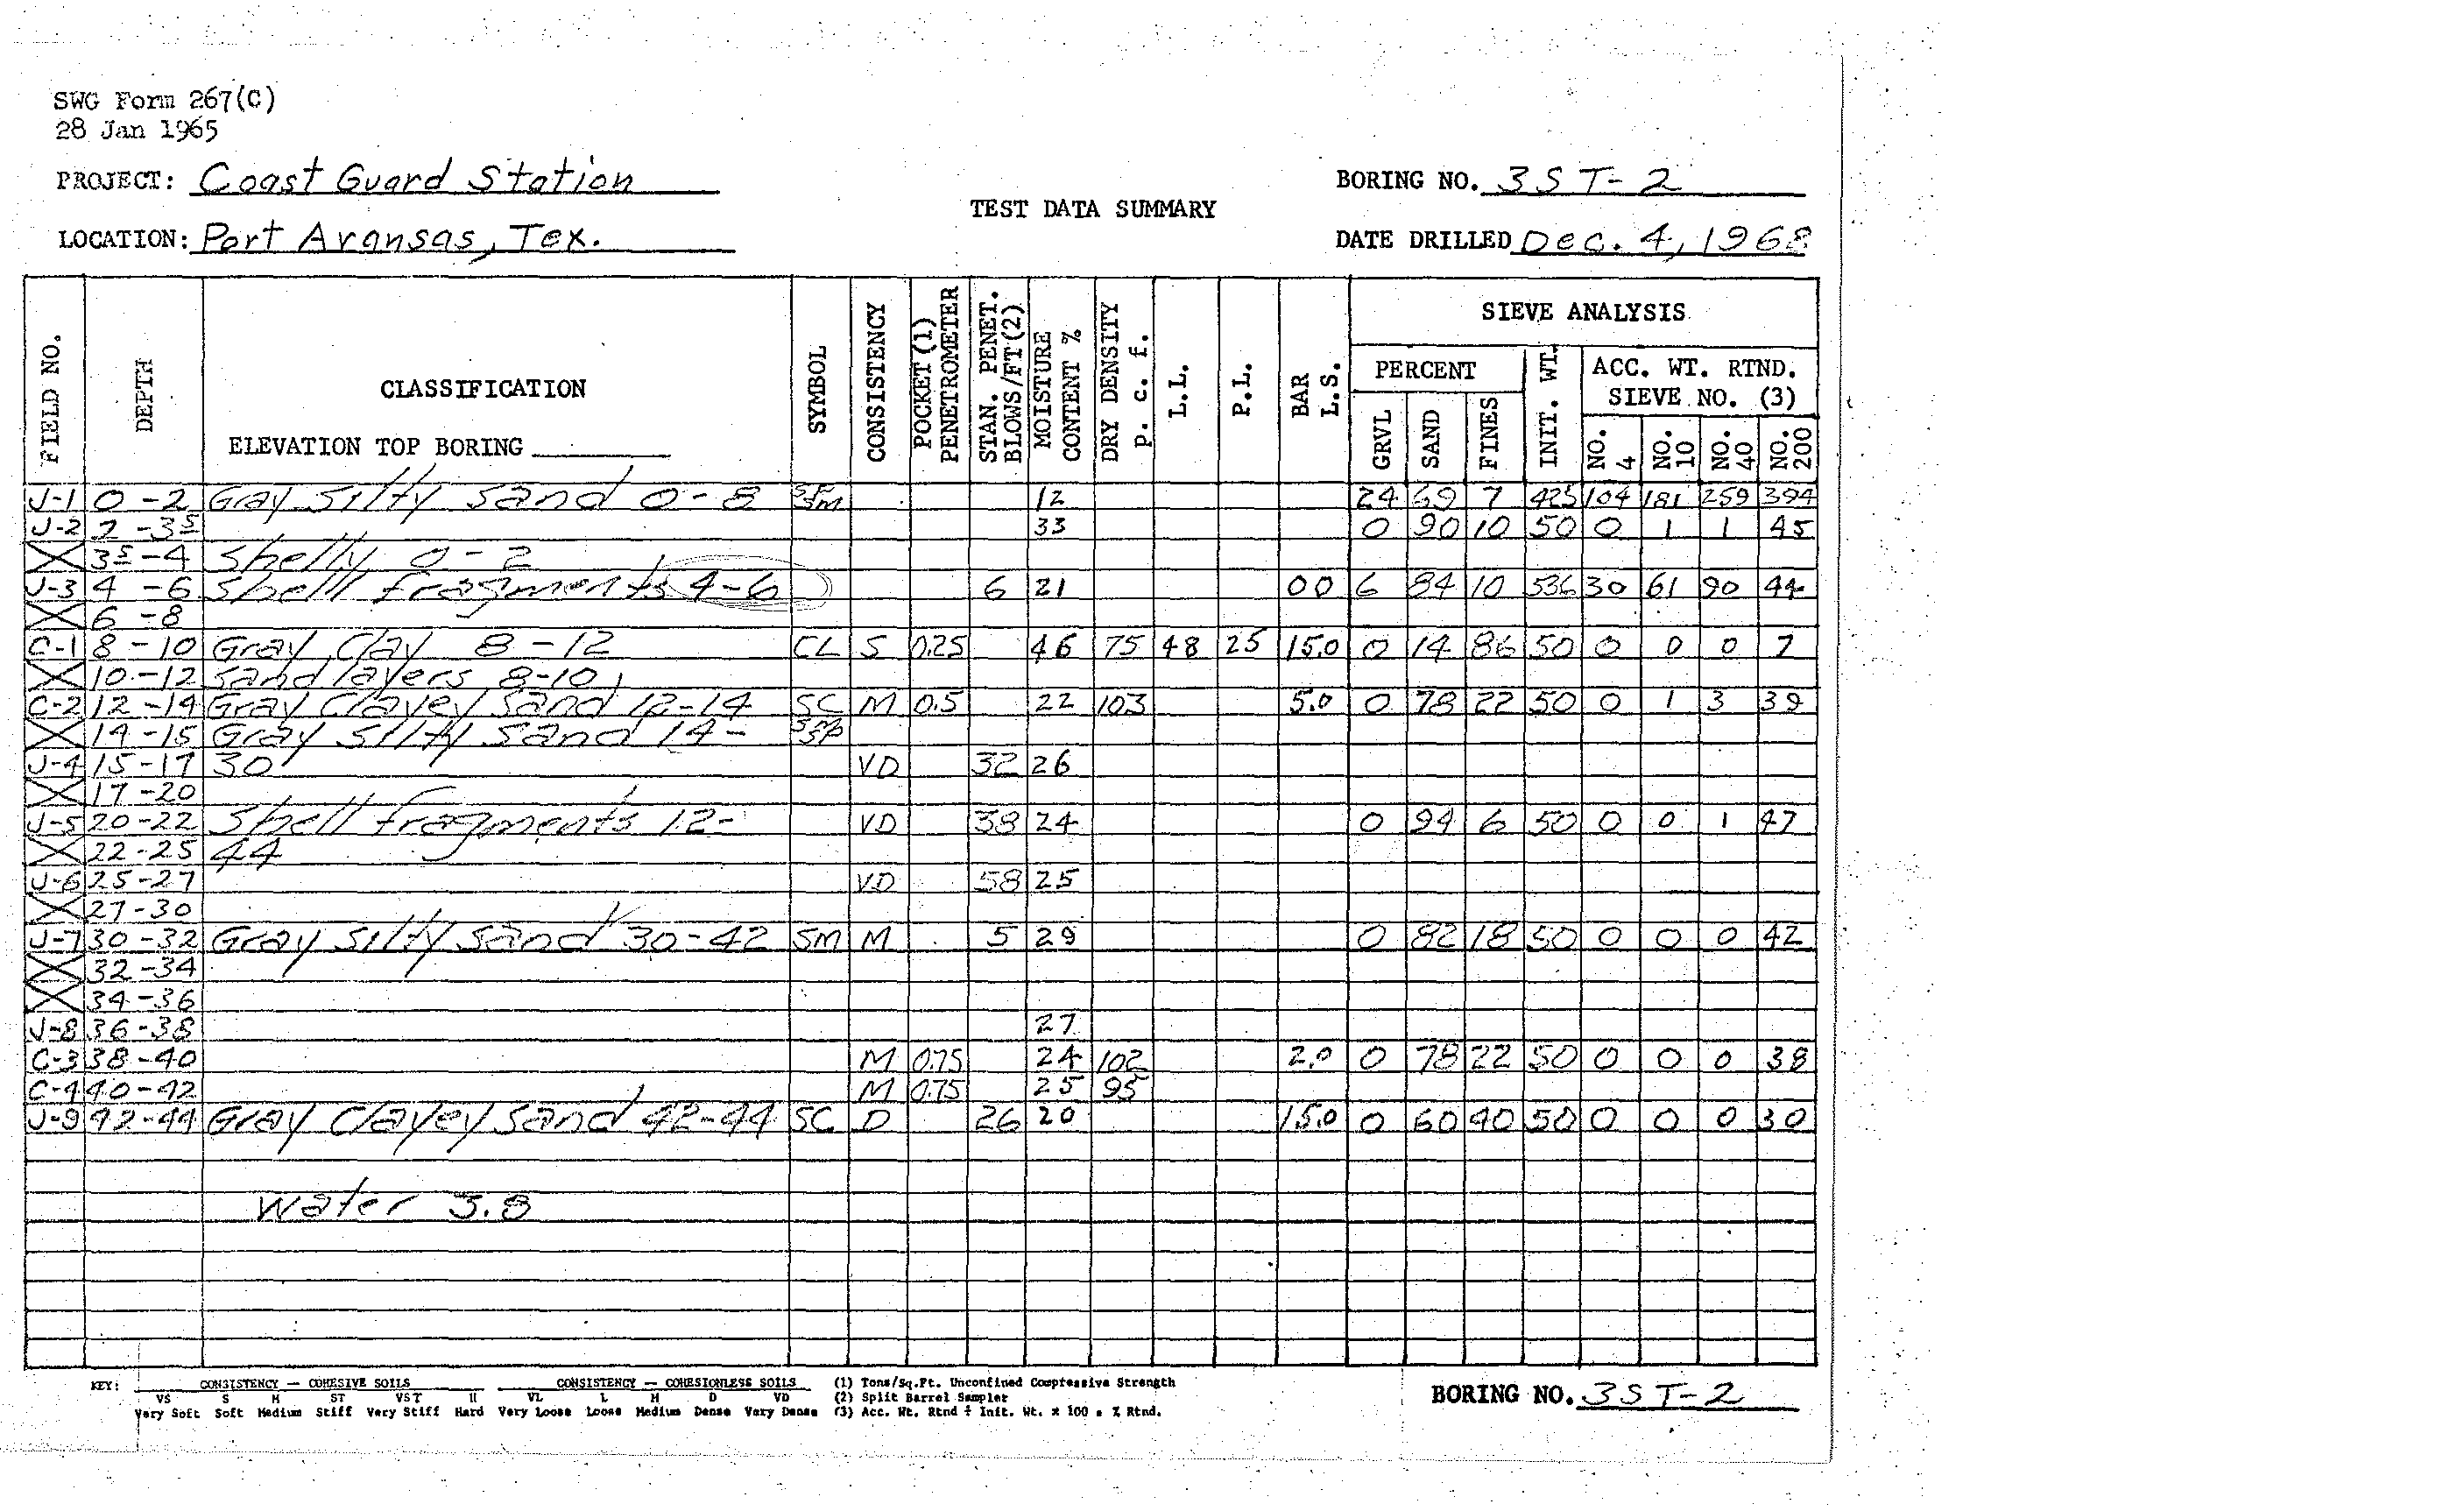 SWG Form 267(C)
28 Jan 1965
PROJECT: Coast Guard Station
BORING NO. 3ST-2
TEST DATA SUMMARY
LOCATION: Port Aransas, Tex.
DATE DRILLED Dec. 4, 1968
FIELD NO. DEPTH CLASSIFICATION ELEVATION TOP BORING SYMBOL CONSISTENCY POCKET (1) PENETROMETER STAN. PENET. BLOWS/FT(2) MOISTURE CONTENT % DRY DENSITY p. c. f. L.L. P.L. BAR L.S. SIEVE ANALYSIS
PERCENT GRVL SAND FINES INIT. WT. ACC. WT. RTND. SIEVE NO. (3) NO. 4 NO. 10 NO. 40 NO. 200
J-1 0-2 Gray silty sand 0-8 12 24 69 7 425 104 181 259 394
J-2 2-35 33 0 90 10 50 0 1 1 45
35-4 Shelly 0-2
J-3 4-6 Shell fragments 4-6 6 21 00 6 84 10 536 30 61 90 44
6-8
C-1 8-10 Gray Clay 8-12 CL S 0.25 46 75 48 25 15.0 0 14 86 50 0 0 0 7
10-12 sand layers 8-10
C-2 12-14 Gray Clayey sand 12-14 SC M 0.5 22 103 5.0 0 78 22 50 0 1 3 39
14-15 Gray silty sand 14-
J-4 15-17 30 VD 32 26
17-20
J-5 20-22 Shell fragments 12- VD 38 24 0 94 6 50 0 0 1 47
22-25 44
J-6 25-27 VD 58 25
27-30
J-7 30-32 Gray silty sand 30-42 SM M 5 29 0 82 18 50 0 0 0 42
32-34
34-36
J-8 36-38 27
C-3 38-40 M 0.75 24 102 2.0 0 78 22 50 0 0 0 38
C-4 40-42 M 0.75 25 95
J-9 42-44 Gray Clayey sand 42-44 SC D 26 20 15.0 0 60 40 50 0 0 0 30
Water 3.8
KEY: CONSISTENCY — COHESIVE SOILS CONSISTENCY — COHESIONLESS SOILS (1) Tons/Sq.Ft. Unconfined Compressive Strength
VS S M ST VST H VL L M D VD (2) Split Barrel Sampler
Very Soft Soft Medium Stiff Very Stiff Hard Very Loose Loose Medium Dense Very Dense (3) Acc. Wt. Rtnd ÷ Init. Wt. x 100 = % Rtnd.
BORING NO. 3ST-2